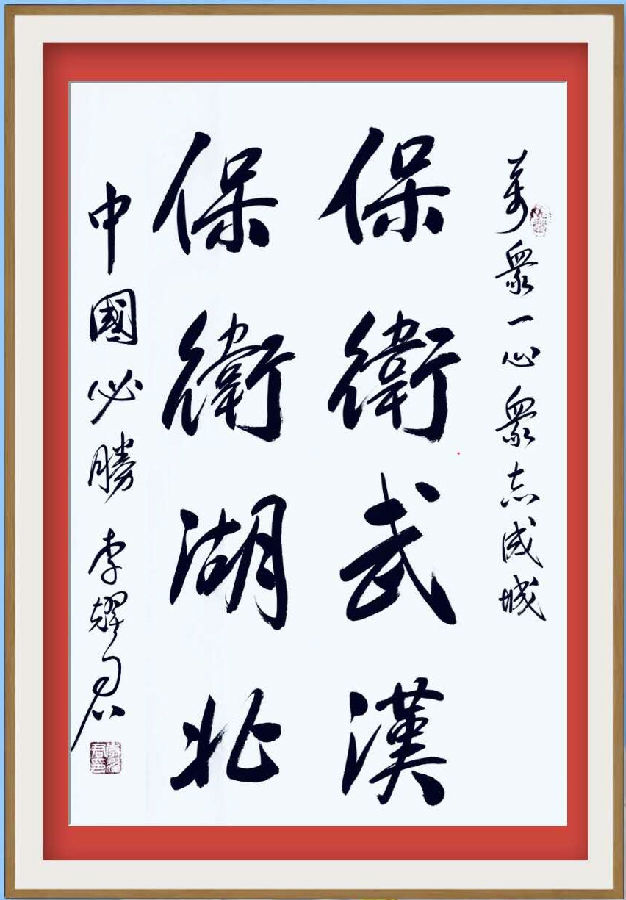 萬衆一心衆志成城
保衛武漢
保衛湖北
中國必勝 李耀君